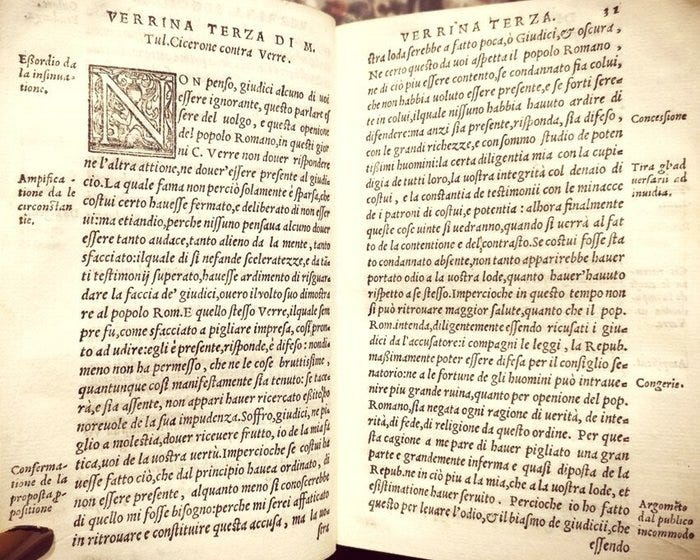 VERRINA TERZA DI M.
Tul. Cicerone contra Verre.
Eßordio da
la insinua=
tione.
NON penso, giudici alcuno di uoi
essere ignorante, questo parlare es
sere del uolgo, e questa openione
del popolo Romano, in questi gior
ni C. Verre non douer rispondere
ne l'altra attione, ne douer' essere presente al giudi=
cio. La quale fama non perciò solamente è sparsa, che
costui certo hauesse fermato, e deliberato di non esser
ui: ma etiandio, perche nissuno pensaua alcuno douer
essere tanto audace, tanto alieno da la mente, tanto
sfacciato: ilquale di sì nefande sceleratezze, e da tā=
ti testimonij superato, hauesse ardimento di risguar=
dare la faccia de' giudici, ouero il uolto suo dimostra
re al popolo Rom. E quello stesso Verre, ilquale sem
pre fu, come sfacciato a pigliare impresa, così pron=
to ad udire: egli è presente, risponde, è difeso: nondi=
meno non ha permesso, che ne le cose bruttissime,
quantunque così manifestamente sia tenuto: se tace=
rà, e sia assente, non appari hauer ricercato esito ho
noreuole de la sua impudenza. Soffro, giudici, ne pi=
glio a molestia, douer riceuere frutto, io de la mia fa
tica, uoi de la uostra uertù. Impercioche se costui ha
uesse fatto ciò, che dal principio hauea ordinato, di
non essere presente, alquanto meno si conoscerebbe
di quello mi fosse bisogno: perche mi serei affaticato
in ritrouare e constituire questa accusa, ma la uo
stra
Amplifica=
tione da le
circonstan
tie.
Conferma=
tione de la
proposta p=
positione
VERRINA TERZA. 31
stra loda serebbe a fatto poca, ò Giudici, & oscura,
Ne certo questo da uoi aspetta il popolo Romano,
ne di ciò piu essere contento, se condannato fia colui,
che non habbia uoluto essere presente, e se forti sere=
te in colui, ilquale nissuno habbia hauuto ardire di
difendere: ma anzi sia presente, risponda, sia difeso,
con le grandi richezze, e con sommo studio de poten
tissimi huomini: la certa diligentia mia con la cupi=
digia di tutti loro, la uostra integrità col denaio di
costui, e la constantia de testimonii con le minacce
de i patroni di costui, e potentia: alhora finalmente
queste cose uinte si uedranno, quando si uerrà al fat
to de la contentione e del contrasto. Se costui fosse sta
to condannato absente, non tanto apparirebbe hauer
portado odio a la uostra lode, quanto hauer' hauuto
rispetto a se stesso. Impercioche in questo tempo non
si può ritrouare maggior salute, quanto che il pop.
Rom. intenda, diligentemente essendo ricusati i giu=
dici da l'accusatore: i compagni le leggi, la Repub.
maßimamente poter essere difesa per il consiglio se=
natorio: ne a le fortune de gli huomini può intraue=
nire piu grande ruina, quanto per openione del pop.
Romano, sia negata ogni ragione di uerità, de inte=
rità, di fede, di religione da questo ordine. Per que=
sta cagione a me pare di hauer pigliato una gran
parte e grandemente inferma e quasi disposta de la
Repub. ne in ciò piu a la mia, che a la uostra lode, et
esistimatione hauer seruito. Percioche io ho fatto
questo per leuare l'odio, & il biasmo de giudicii, che
essendo
Concessione
Tira gli ad
uersarii ad
inuidia.
Congerie.
Argomēto
dal publico
incommodo